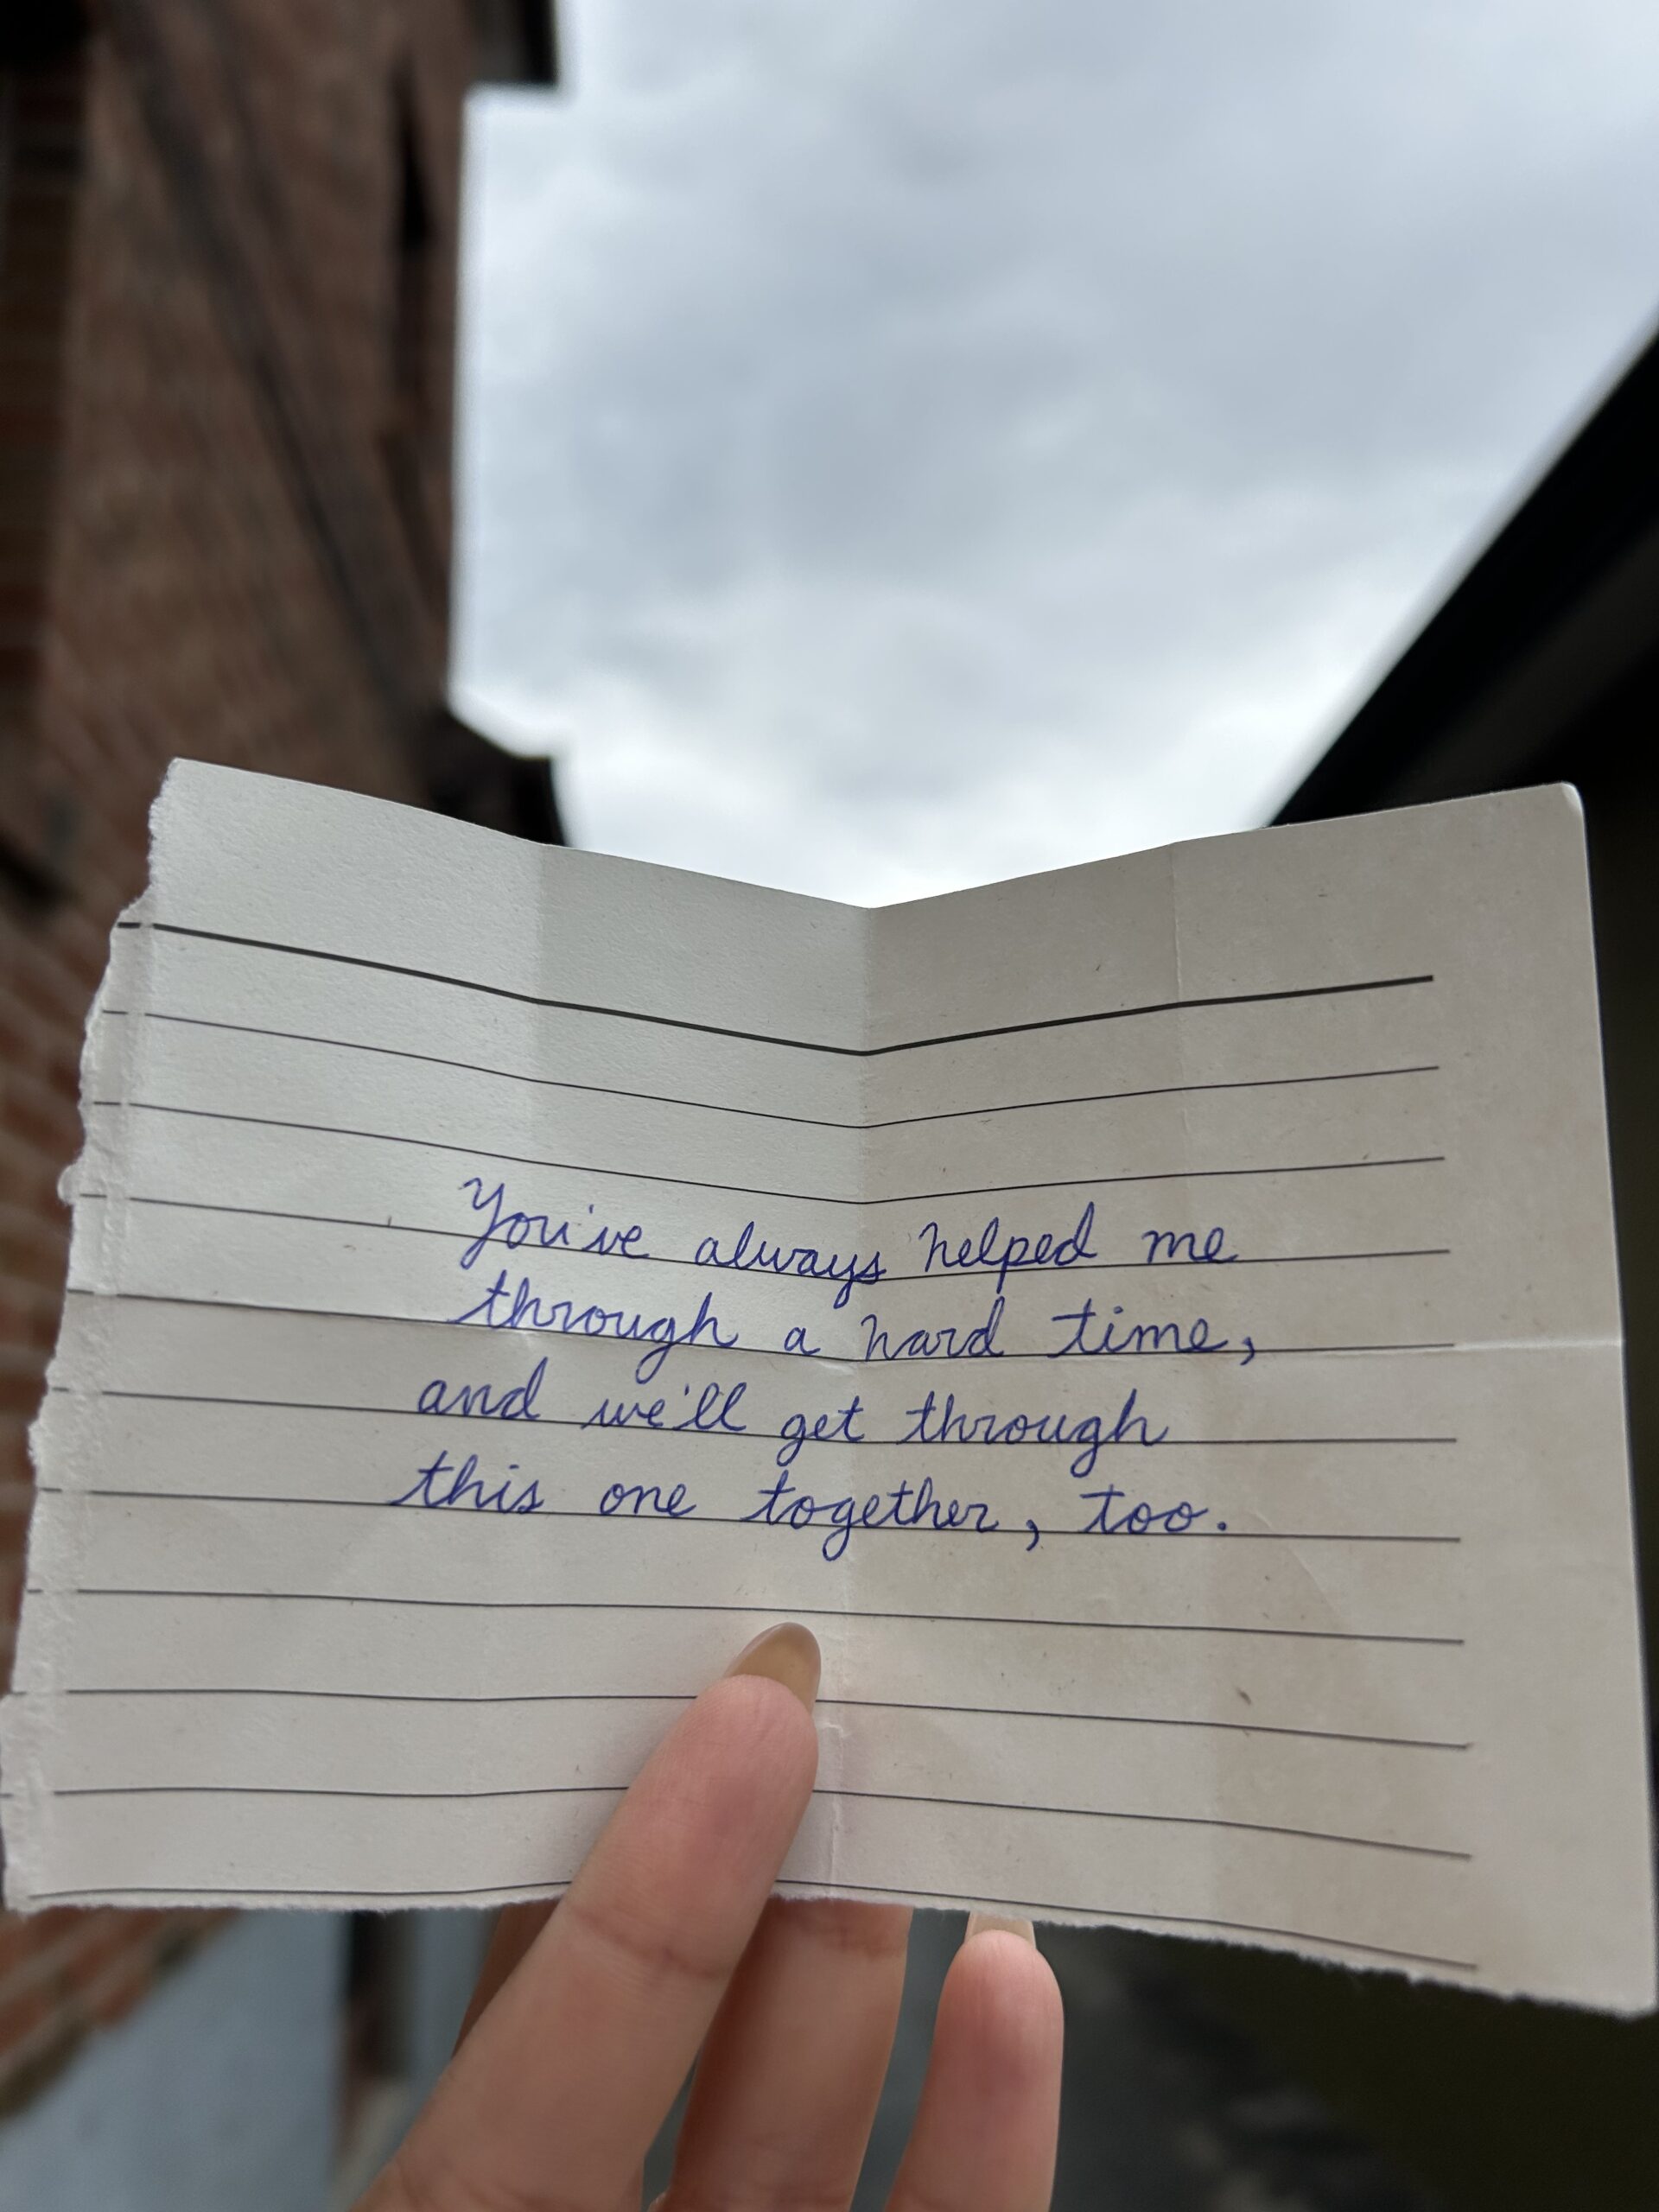 You've always helped me
through a hard time,
and we'll get through
this one together, too.